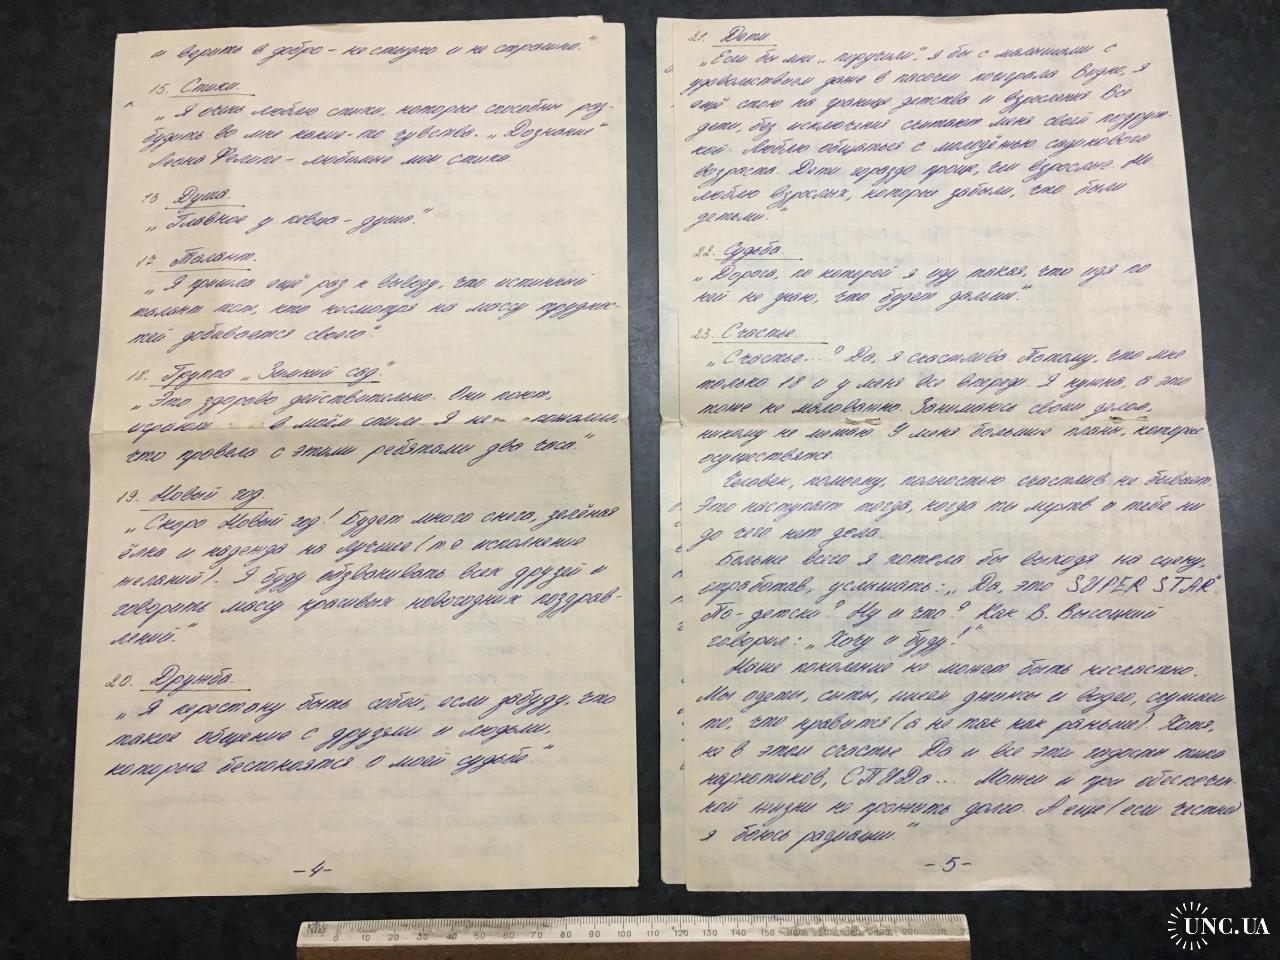 и верить в добро - не стыдно и не страшно."
15. Стихи.
„Я очень люблю стихи, которые способны раз-
будить во мне какие-то чувства. „Дознание"
Леона Фелипе - любимые мои стихи.
16 Душа.
„Главное у певца - душа."
17. Талант.
„Я пришла ещё раз к выводу, что истинный
талант тот, кто несмотря на массу труднос-
тей добивается своего."
18. Группа „Зимний сад."
„Это здорово действительно. Они поют,
играют в моём стиле. Я не пожалела,
что провела с этими ребятами два часа."
19. Новый год.
„Скоро Новый год! Будет много снега, зелёная
ёлка и надежда на лучшее (т.е. исполнение
желаний). Я буду обзванивать всех друзей и
говорить массу красивых новогодних поздрав-
лений."
20. Дружба.
„Я перестану быть собой, если забуду, что
такое общение с друзьями и людьми,
которые беспокоятся о моей судьбе."
-4-
21. Дети
„Если бы мне „поручили", я бы с малышами с
удовольствием даже в пасочки поиграла. Видно, я
ещё стою на границе детства и взросления. Все
дети, без исключения считают меня своей подруж-
кой. Люблю общаться с молодёжью садикового
возраста. Дети гораздо проще, чем взрослые. Не
люблю взрослых, которые забыли, что были
детьми."
22. Судьба.
„Дорога, по которой я иду такая, что идя по
ней не знаю, что будет дальше."
23. Счастье.
„Счастье...? Да, я счастлива. Потому, что мне
только 18 и у меня все впереди. Я нужна, а это
тоже не маловажно. Занимаюсь своим делом,
никому не мешаю. У меня большие планы, которые
осуществятся.
Человек, по-моему, полностью счастлив не бывает.
Это наступает тогда, когда ты мертв и тебе ни
до чего нет дела.
Больше всего я хотела бы выходя на сцену,
отработав, услышать: „Да, это SUPER STAR".
По-детски? Ну и что? Как В. Высоцкий
говорил: „Хочу и буду!"
Наше поколение не может быть несчастно.
Мы одеты, сыты, имеем джинсы и видео, слушаем
то, что нравится (а не так как раньше). Хотя,
не в этом счастье. Да и все эти радости типа
наркотиков, СПИДа... Можем и при обеспечен-
ной жизни не прожить долго. А еще (если честно)
я боюсь радиации."
-5-
0 10 20 30 40 50 60 70 80 90 100 110 120 130 140 150 160 170 180 190 200 210
UNC.UA